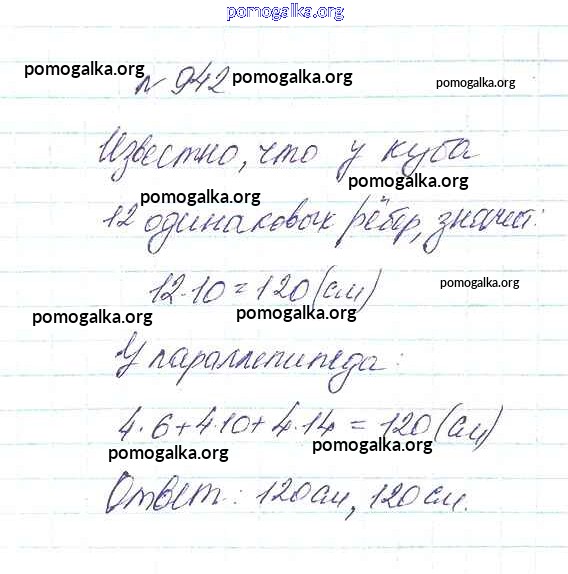 pomogalka.org
pomogalka.org № 942 pomogalka.org pomogalka.org
Известно, что у куба
pomogalka.org pomogalka.org
12 одинаковых рёбер, значит:
pomogalka.org
12·10=120(см)
pomogalka.org pomogalka.org
У параллепипеда:
4·6+4·10+4·14=120(см)
pomogalka.org pomogalka.org
Ответ: 120см, 120см.